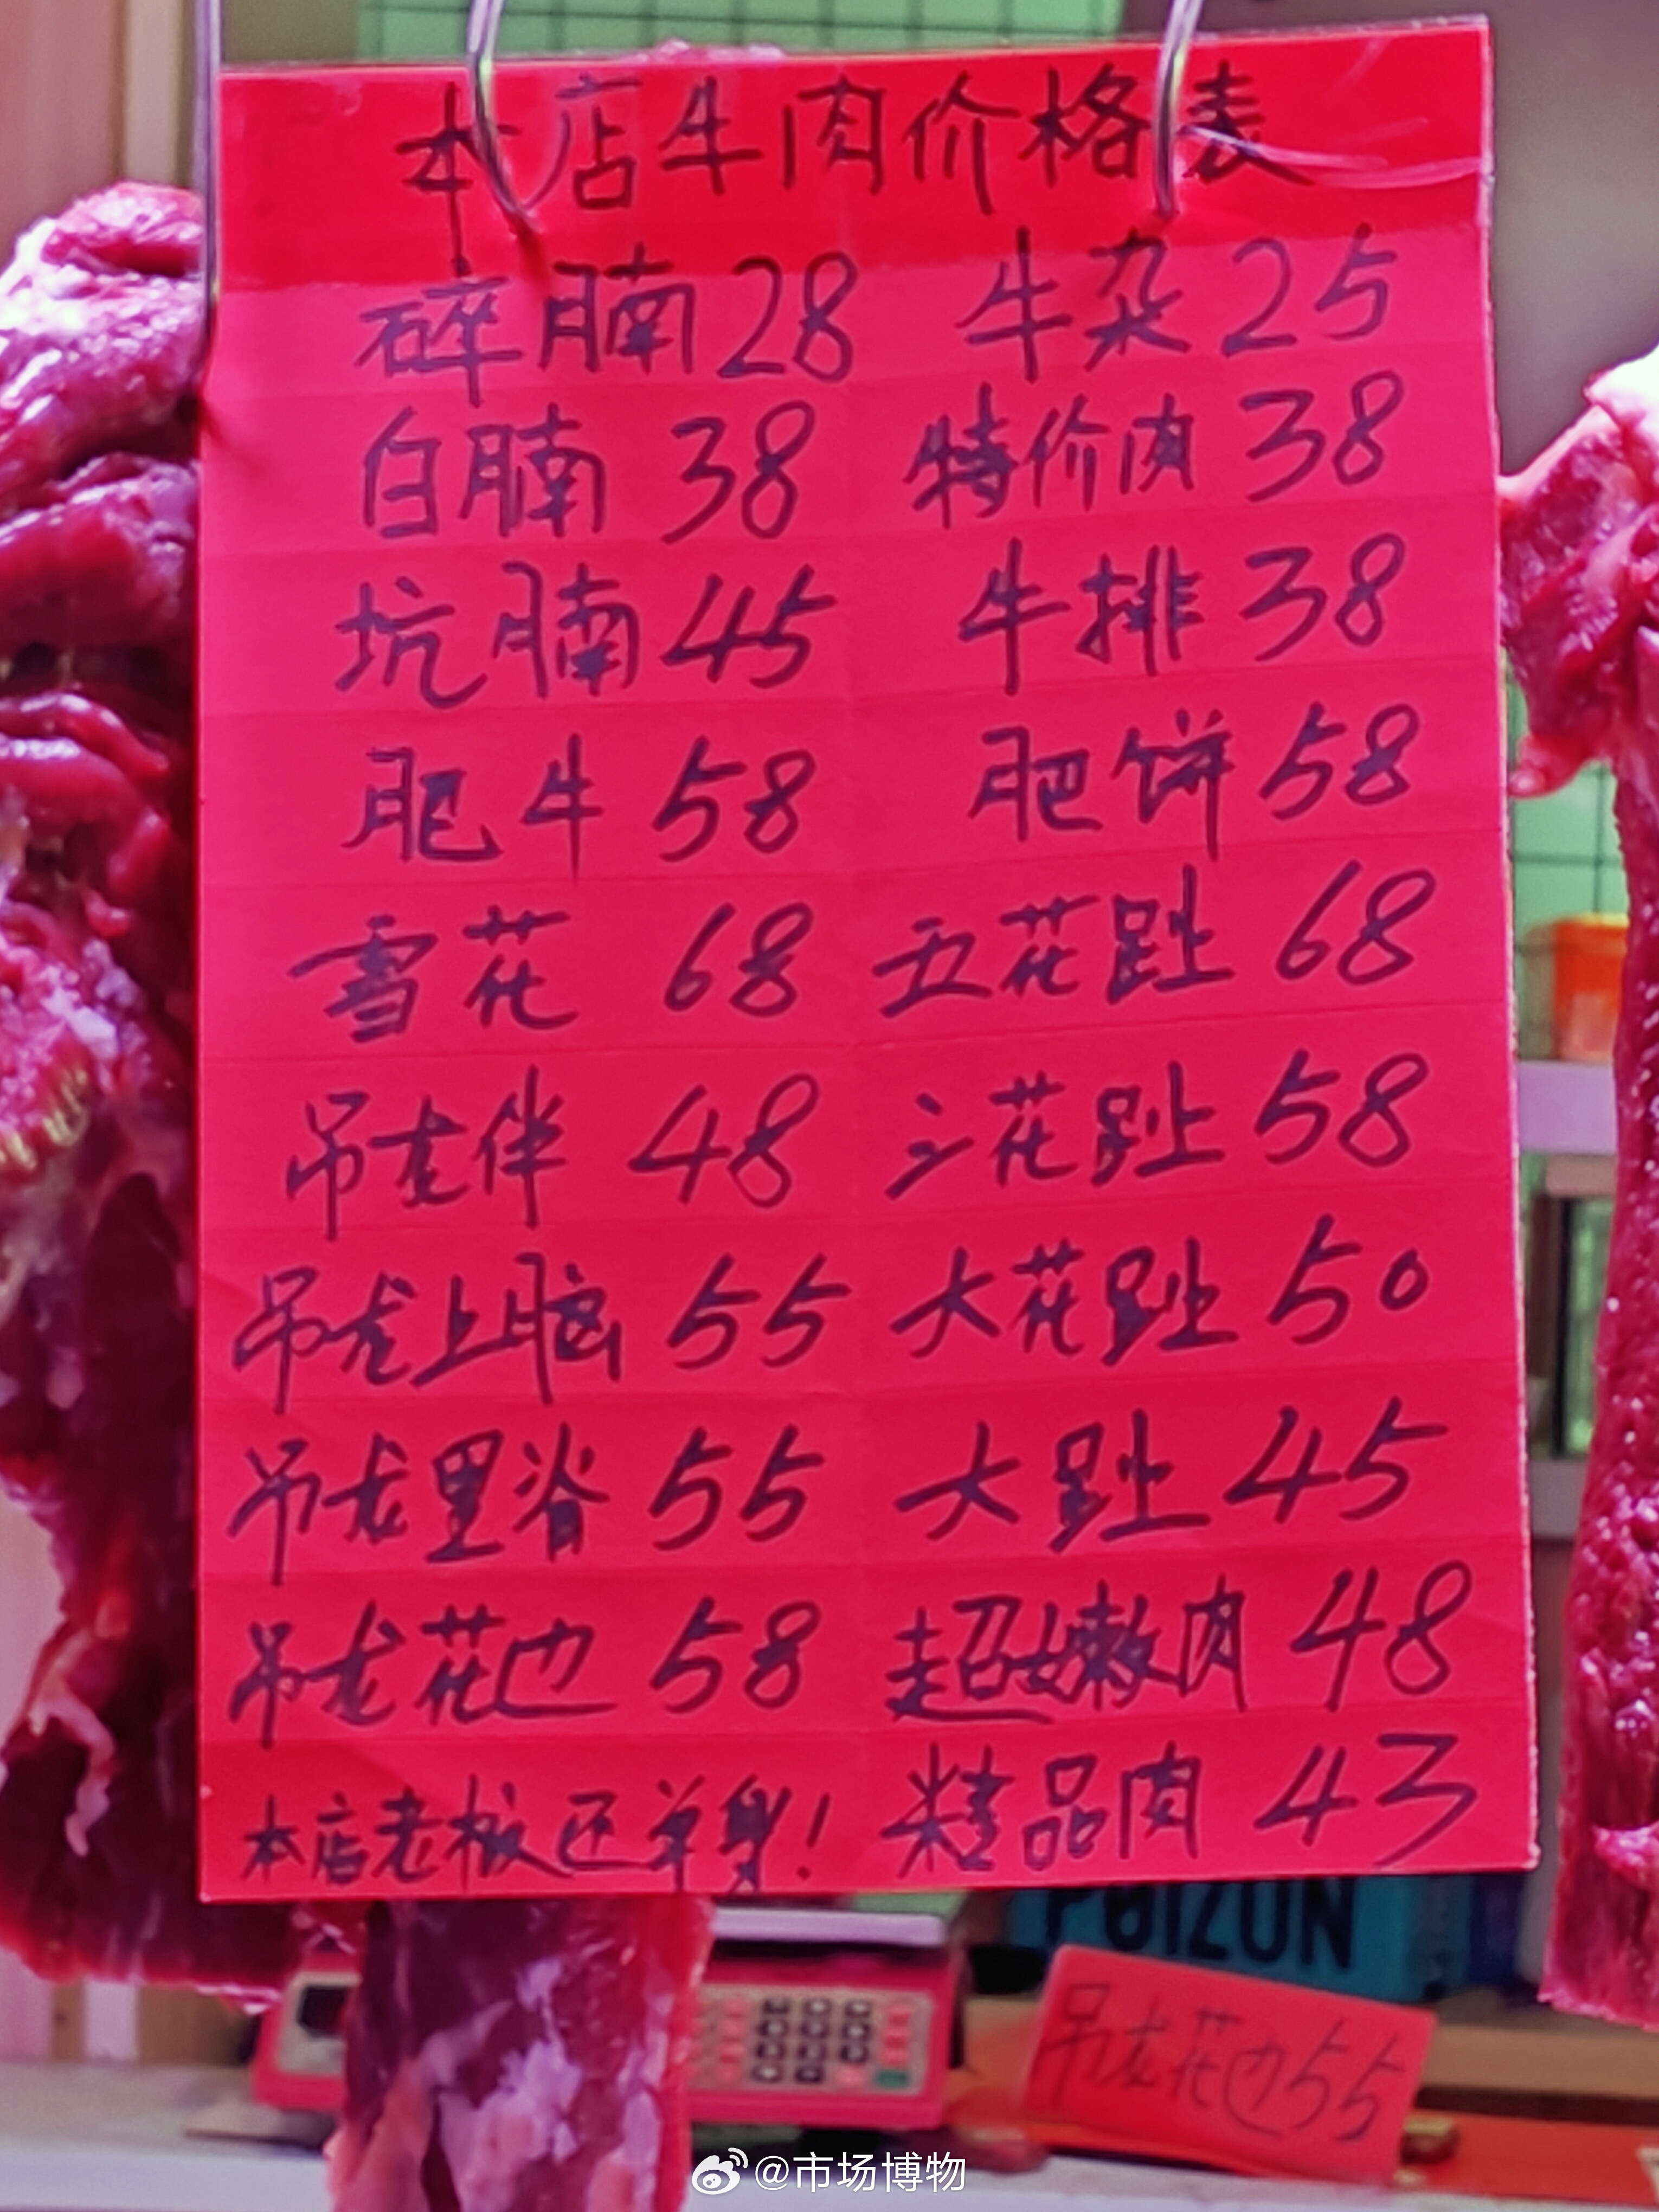 本店牛肉价格表
碎腩28 牛杂25
白腩 38 特价肉 38
坑腩45 牛排 38
肥牛 58 肥饼 58
雪花 68 五花趾 68
吊龙伴 48 三花趾 58
吊龙上脑 55 大花趾 50
吊龙里脊 55 大趾 45
吊龙花边 58 超嫩肉 48
本店老板还单身! 精品肉 43
POIZON
吊龙花边55
@市场博物